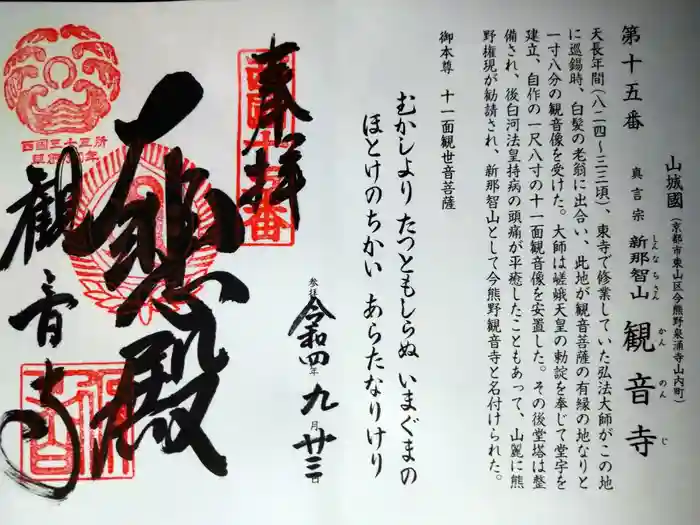 第十五番
山城國（京都市東山区今熊野泉涌寺山内町）
真言宗 新那智山 観音寺
しんなちさん かんのんじ
天長年間（八二四～三三頃）、東寺で修業していた弘法大師がこの地
に巡錫時、白髪の老翁に出合い、此地が観音菩薩の有縁の地なりと
一寸八分の観音像を受けた。大師は嵯峨天皇の勅詔を奉じて堂宇を
建立、自作の一尺八寸の十一面観音像を安置した。その後堂塔は整
備され、後白河法皇持病の頭痛が平癒したこともあって、山麓に熊
野権現が勧請され、新那智山として今熊野観音寺と名付けられた。
御本尊 十一面観世音菩薩
むかしより たつともしらぬ いまぐまの
ほとけのちかい あらたなりけり
参拝 令和四年九月廿三日
奉拝
大悲殿
観音寺
西国三十三所
草創1300年
西国十五番